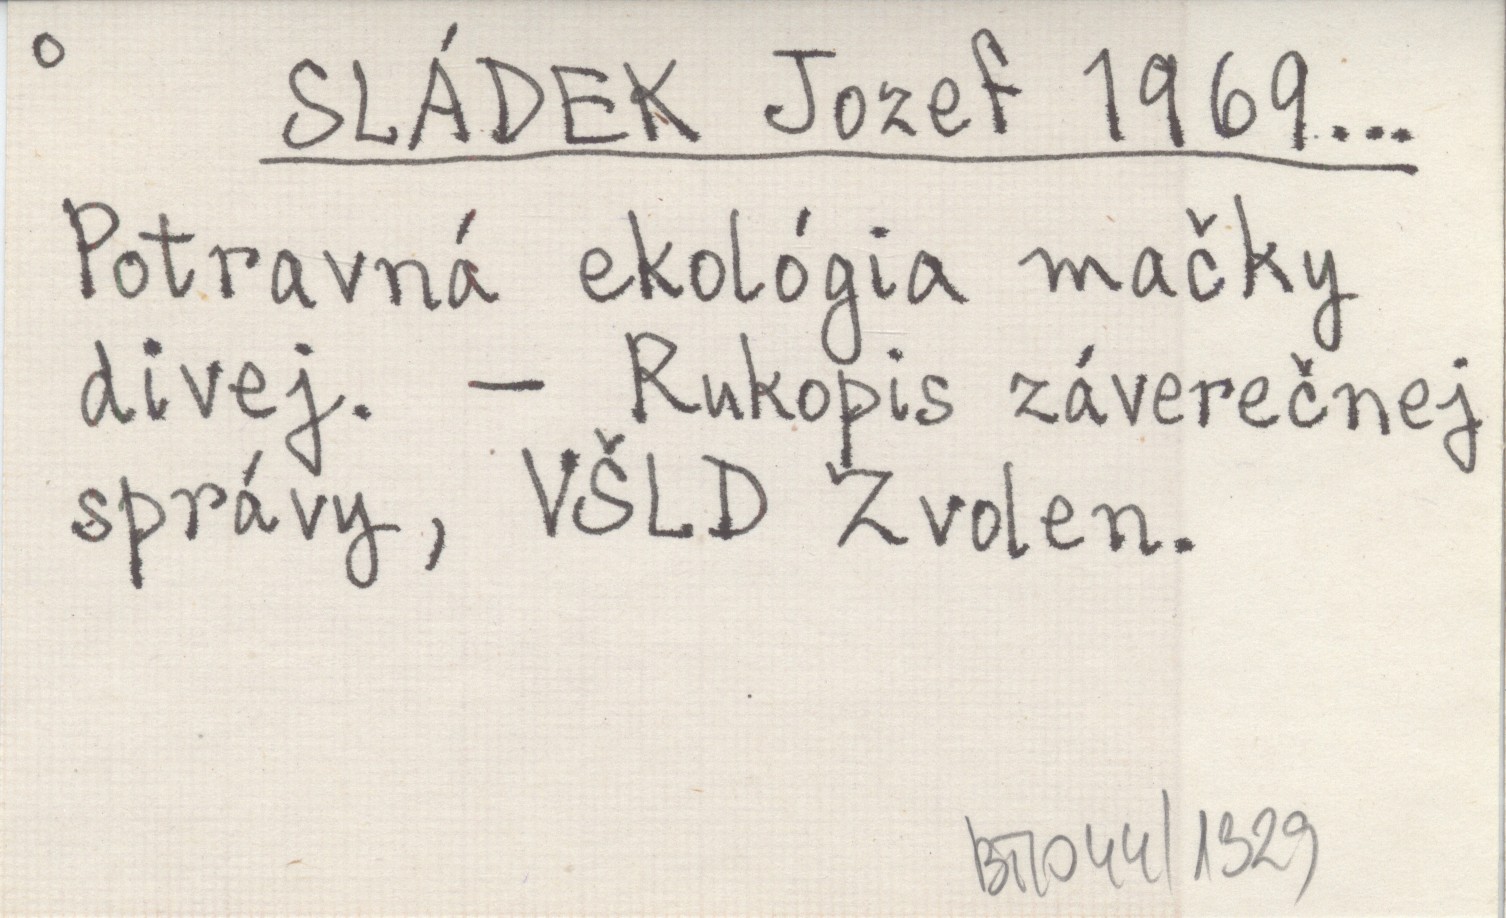 o
SLÁDEK Jozef 1969...
Potravná ekológia mačky
divej. — Rukopis záverečnej
správy, VŠLD Zvolen.
1329